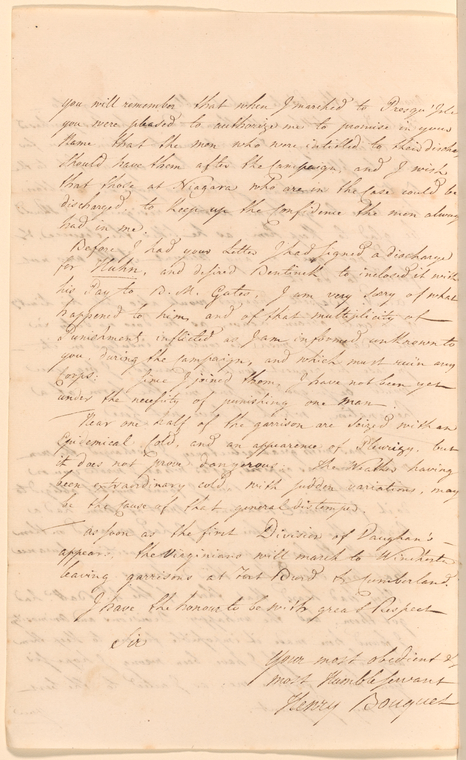 you will remember that when I marched to Presqu'Isle
you were pleased to authorize me to promise in your
Name that the men who were intitled to their discha
should have them after the Campaign, and I wish
that those at Niagara who are in the Case could be
discharged, to keep up the Confidence the men always
had in me.
Before I had your Letter I had signed a discharge
for Hahn, and desired Bentinck to inclosed it with
his Pay to B. M. Gates, I am very sory of what
happened to him, and of that multiplicity of
Punishment inflicted as I am informed unknown to
you during the Campaign, and which must ruin any
Corps: Since I joined them, I have not been yet
under the necessity of punishing one man.
Near one half of the garrison are Seized with an
Epidemical Cold, and an appearence of Pleurisy, but
it does not prove dangerous. The Weather having
been extraordinary cold, with sudden variations, may
be the cause of that general distemper.
as soon as the first Division of Vaughan's
appears, the Virginians will march to Winchester
leaving garrisons at Fort Bedford & Cumberland.
I have the honour to be with great Respect
Sir
Your most obedient &
most Humble Servant
Henry Bouquet